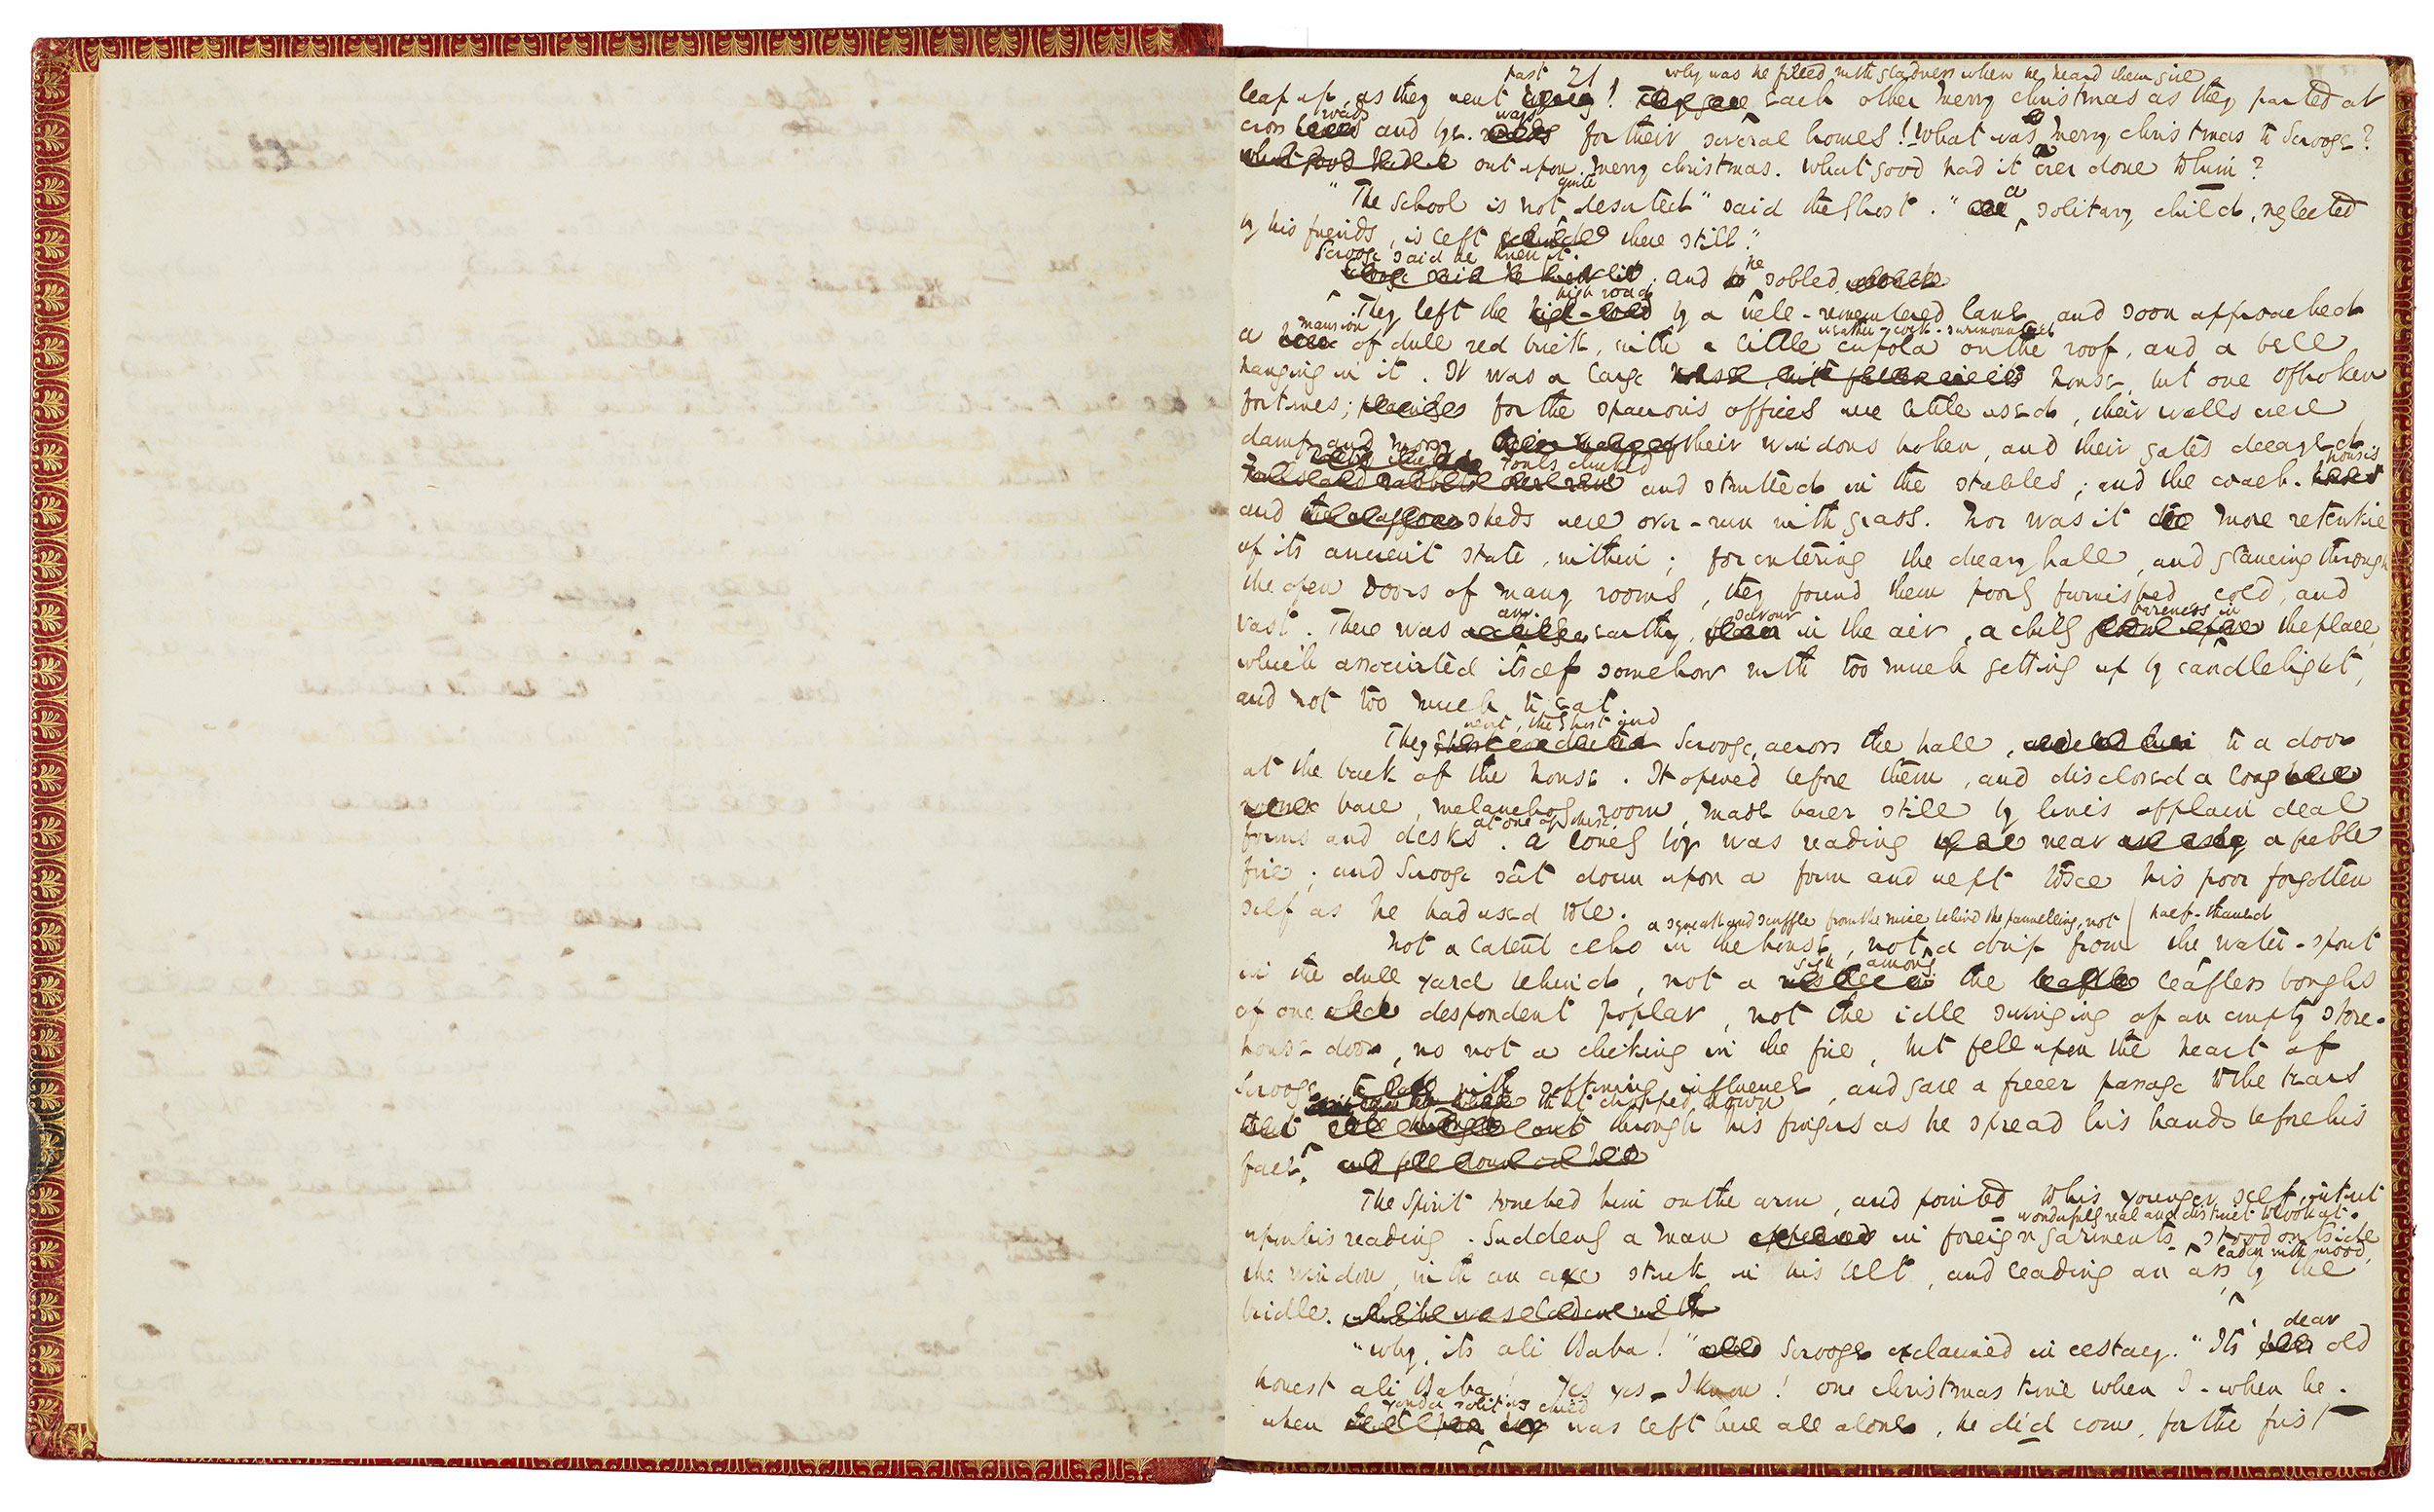 21
leap up as they went past! why was he filled with gladness when he heard them give each other merry christmas as they parted at
cross roads and bye-ways for their several homes! What was merry christmas to Scrooge?
out upon merry christmas. What good had it ever done to him?
"The School is not quite deserted" said the Ghost. "a solitary child, neglected
by his friends, is left there still."
Scrooge said he knew it. and he sobbed.
They left the high road by a well-remembered lane, and soon approached
a mansion of dull red brick, with a little weather-cock-surmounted cupola on the roof, and a bell
hanging in it. It was a large house, but one of broken
fortunes; for the spacious offices were little used, their walls were
damp and mossy, their windows broken, and their gates decayed.
Fowls clucked and strutted in the stables; and the coach-houses
and sheds were over-run with grass. Nor was it more retentive
of its ancient state, within; for entering the dreary hall, and glancing through
the open doors of many rooms, they found them poorly furnished, cold, and
vast. There was an earthy savour in the air, a chilly bareness in the place,
which associated itself somehow with too much getting up by candlelight,
and not too much to eat.
They went, the Ghost and Scrooge, across the hall, to a door
at the back of the house. It opened before them, and disclosed a long
bare, melancholy room, made barer still by lines of plain deal
forms and desks. at one of these a lonely boy was reading near a feeble
fire; and Scrooge sat down upon a form and wept to see his poor forgotten
self as he had used to be.
Not a latent echo in the house, not a squeak and scuffle from the mice behind the pannelling, not a drip from the half-thawed water-spout
in the dull yard behind, not a sigh among the leafless boughs
of one despondent poplar, not the idle swinging of an empty store-
house door, no not a clicking in the fire, but fell upon the heart of
Scrooge with softening influence, and gave a freer passage to the tears
that dropped down through his fingers as he spread his hands before his
face.
The Spirit touched him on the arm, and pointed to his younger self, intent
upon his reading. Suddenly a man in foreign garments, wonderfully real and distinct to look at. stood outside
the window, with an axe stuck in his belt, and leading an ass laden with wood, by the
bridle.
"Why, its ali Baba!" Scrooge exclaimed in ecstacy. "Its dear old
honest ali Baba! Yes yes - I know! One christmas time when I - when he -
when yonder solitary child was left here all alone, he did come, for the first